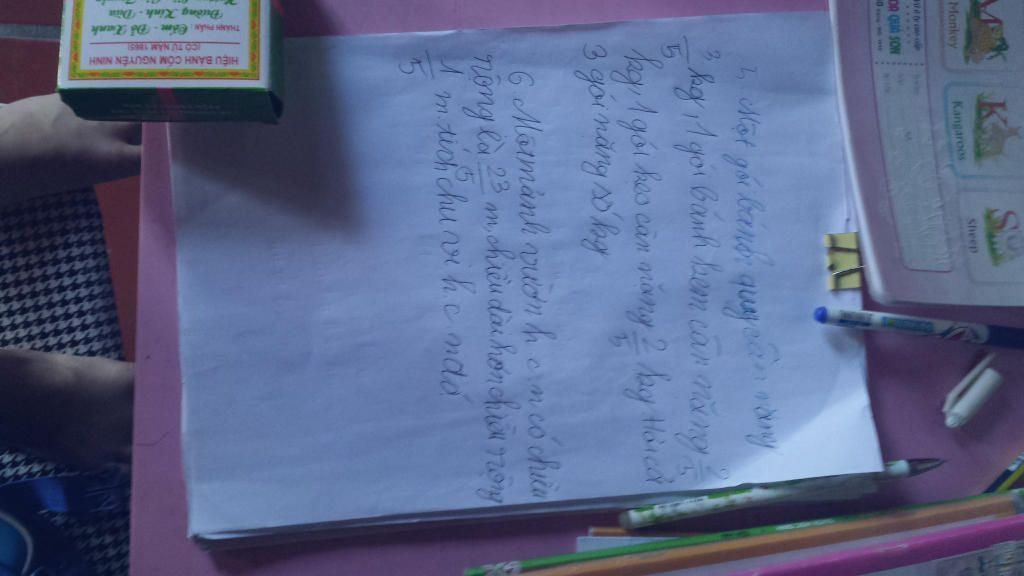 Một gói bánh quy cân nặng
3/5 kg, 1 gói bánh kem cân nặng 2/5
kg, 1 gói kẹo cân nặng 2/5 kg Hỏi cả
3 gói nặng số kg
6 Một mảnh vườn h c n có chiều
rộng là 23/5 m chiều dài hơn chiều rộng
1/5 m
chu vi h c n đó
HIỆU BÁNH CỐM NGUYÊN NINH
(CÓ TỪ NĂM 1865)
THÀNH PHẦN
Cốm - Đỗ Xanh
Đường Kính - Dừa
Monkey
Kangaroos
sheep